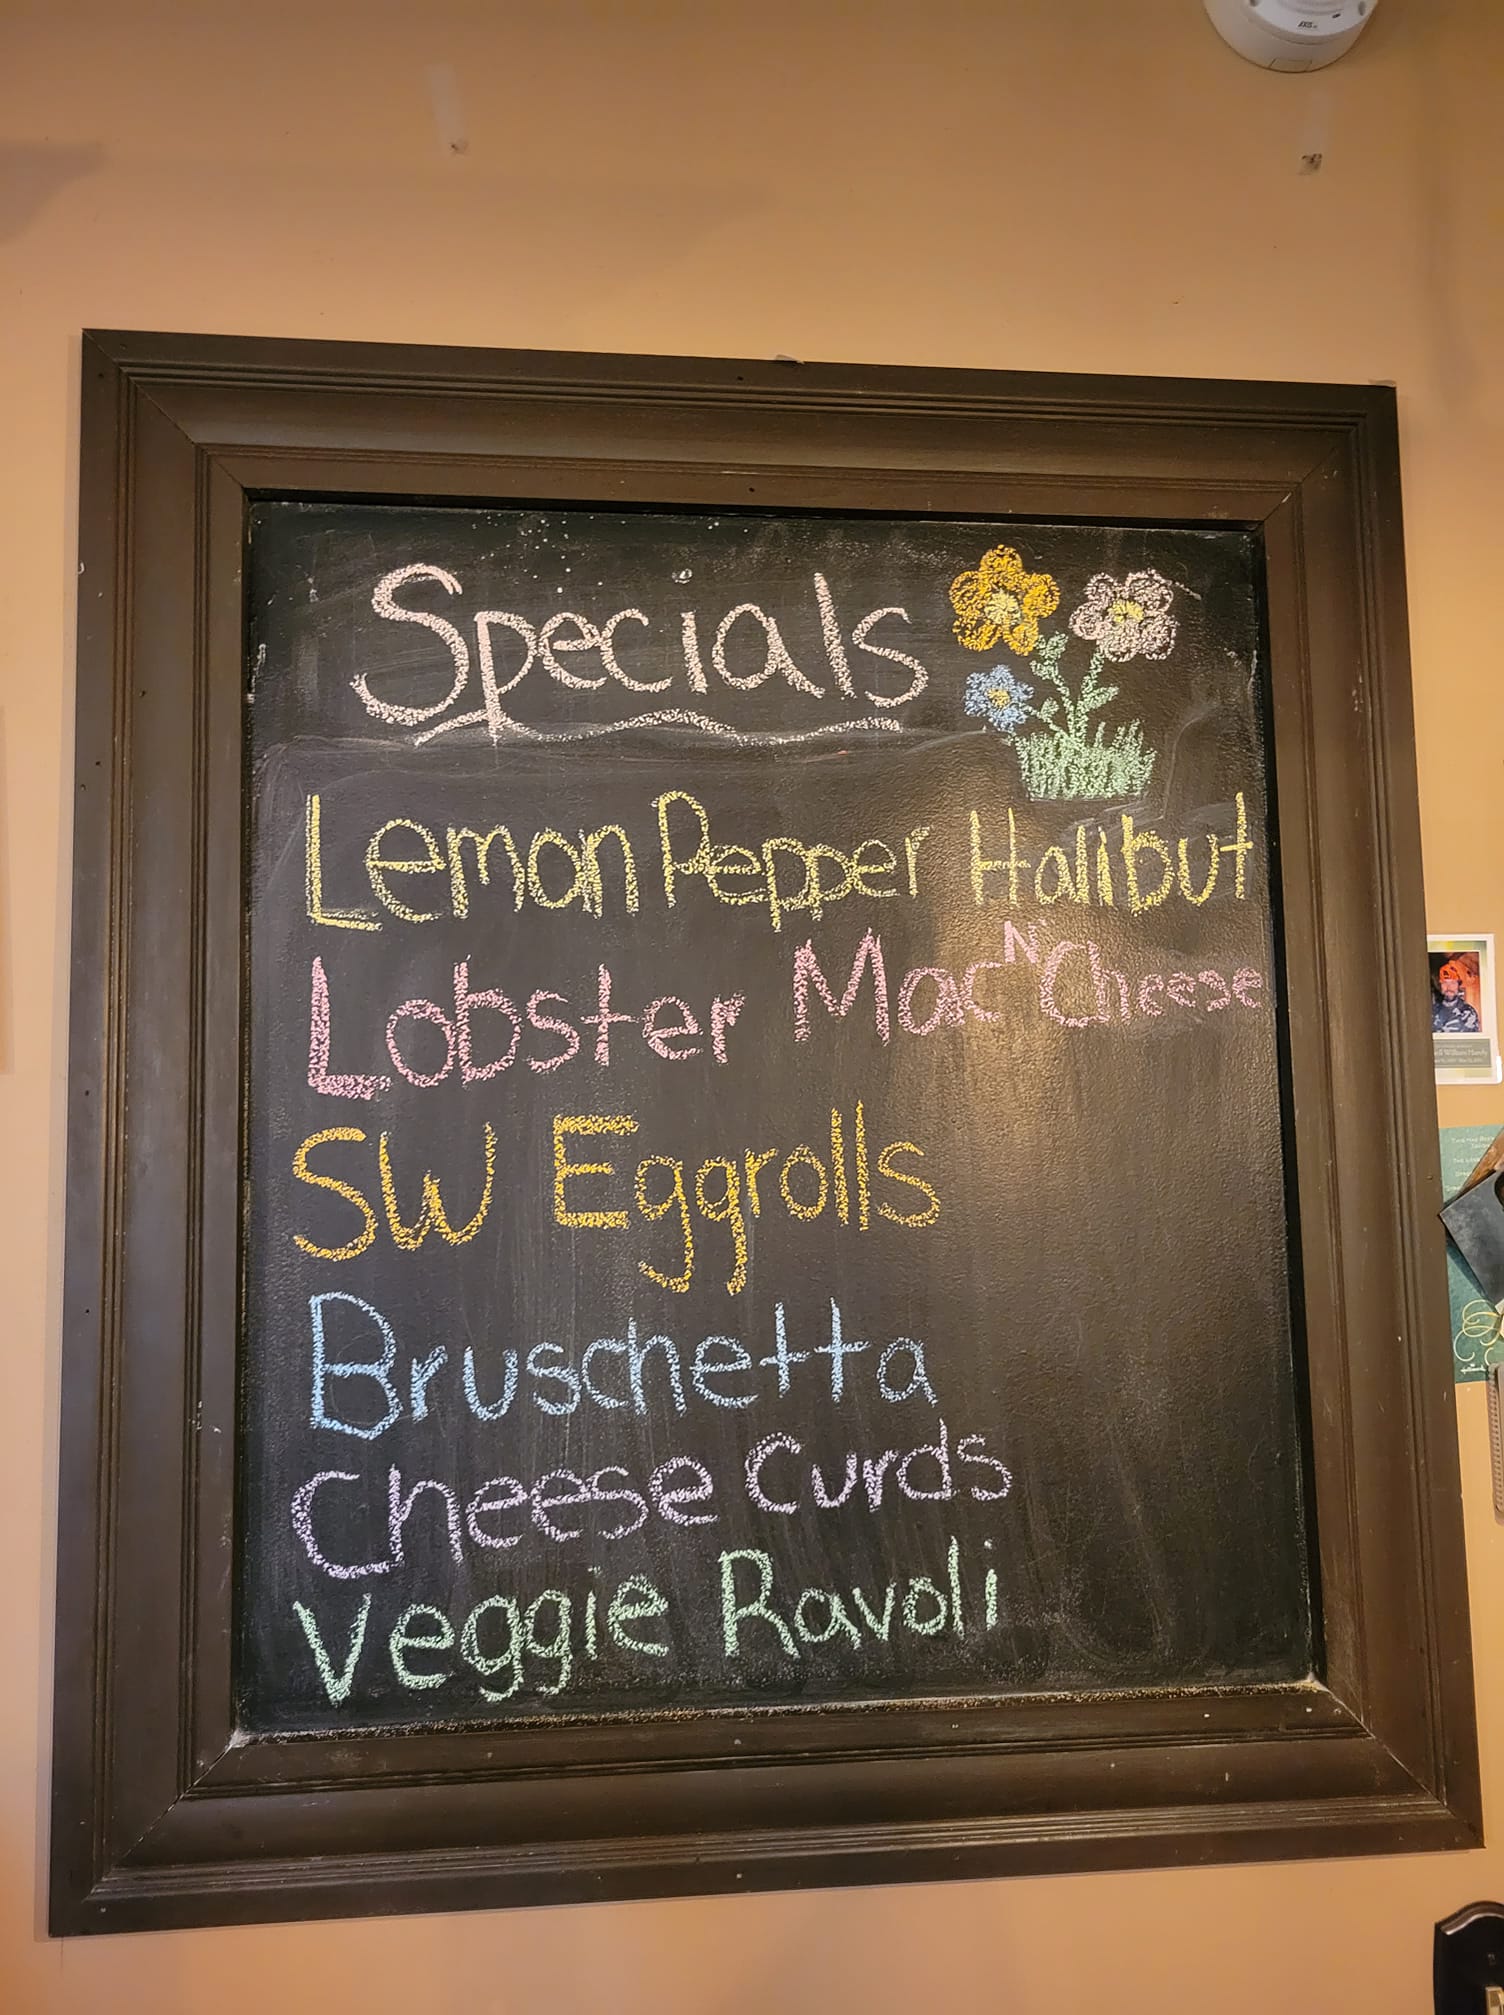 Specials
Lemon Pepper Halibut
Lobster Mac N' Cheese
SW Eggrolls
Bruschetta
Cheese Curds
Veggie Ravoli
AXIS
William Hardy